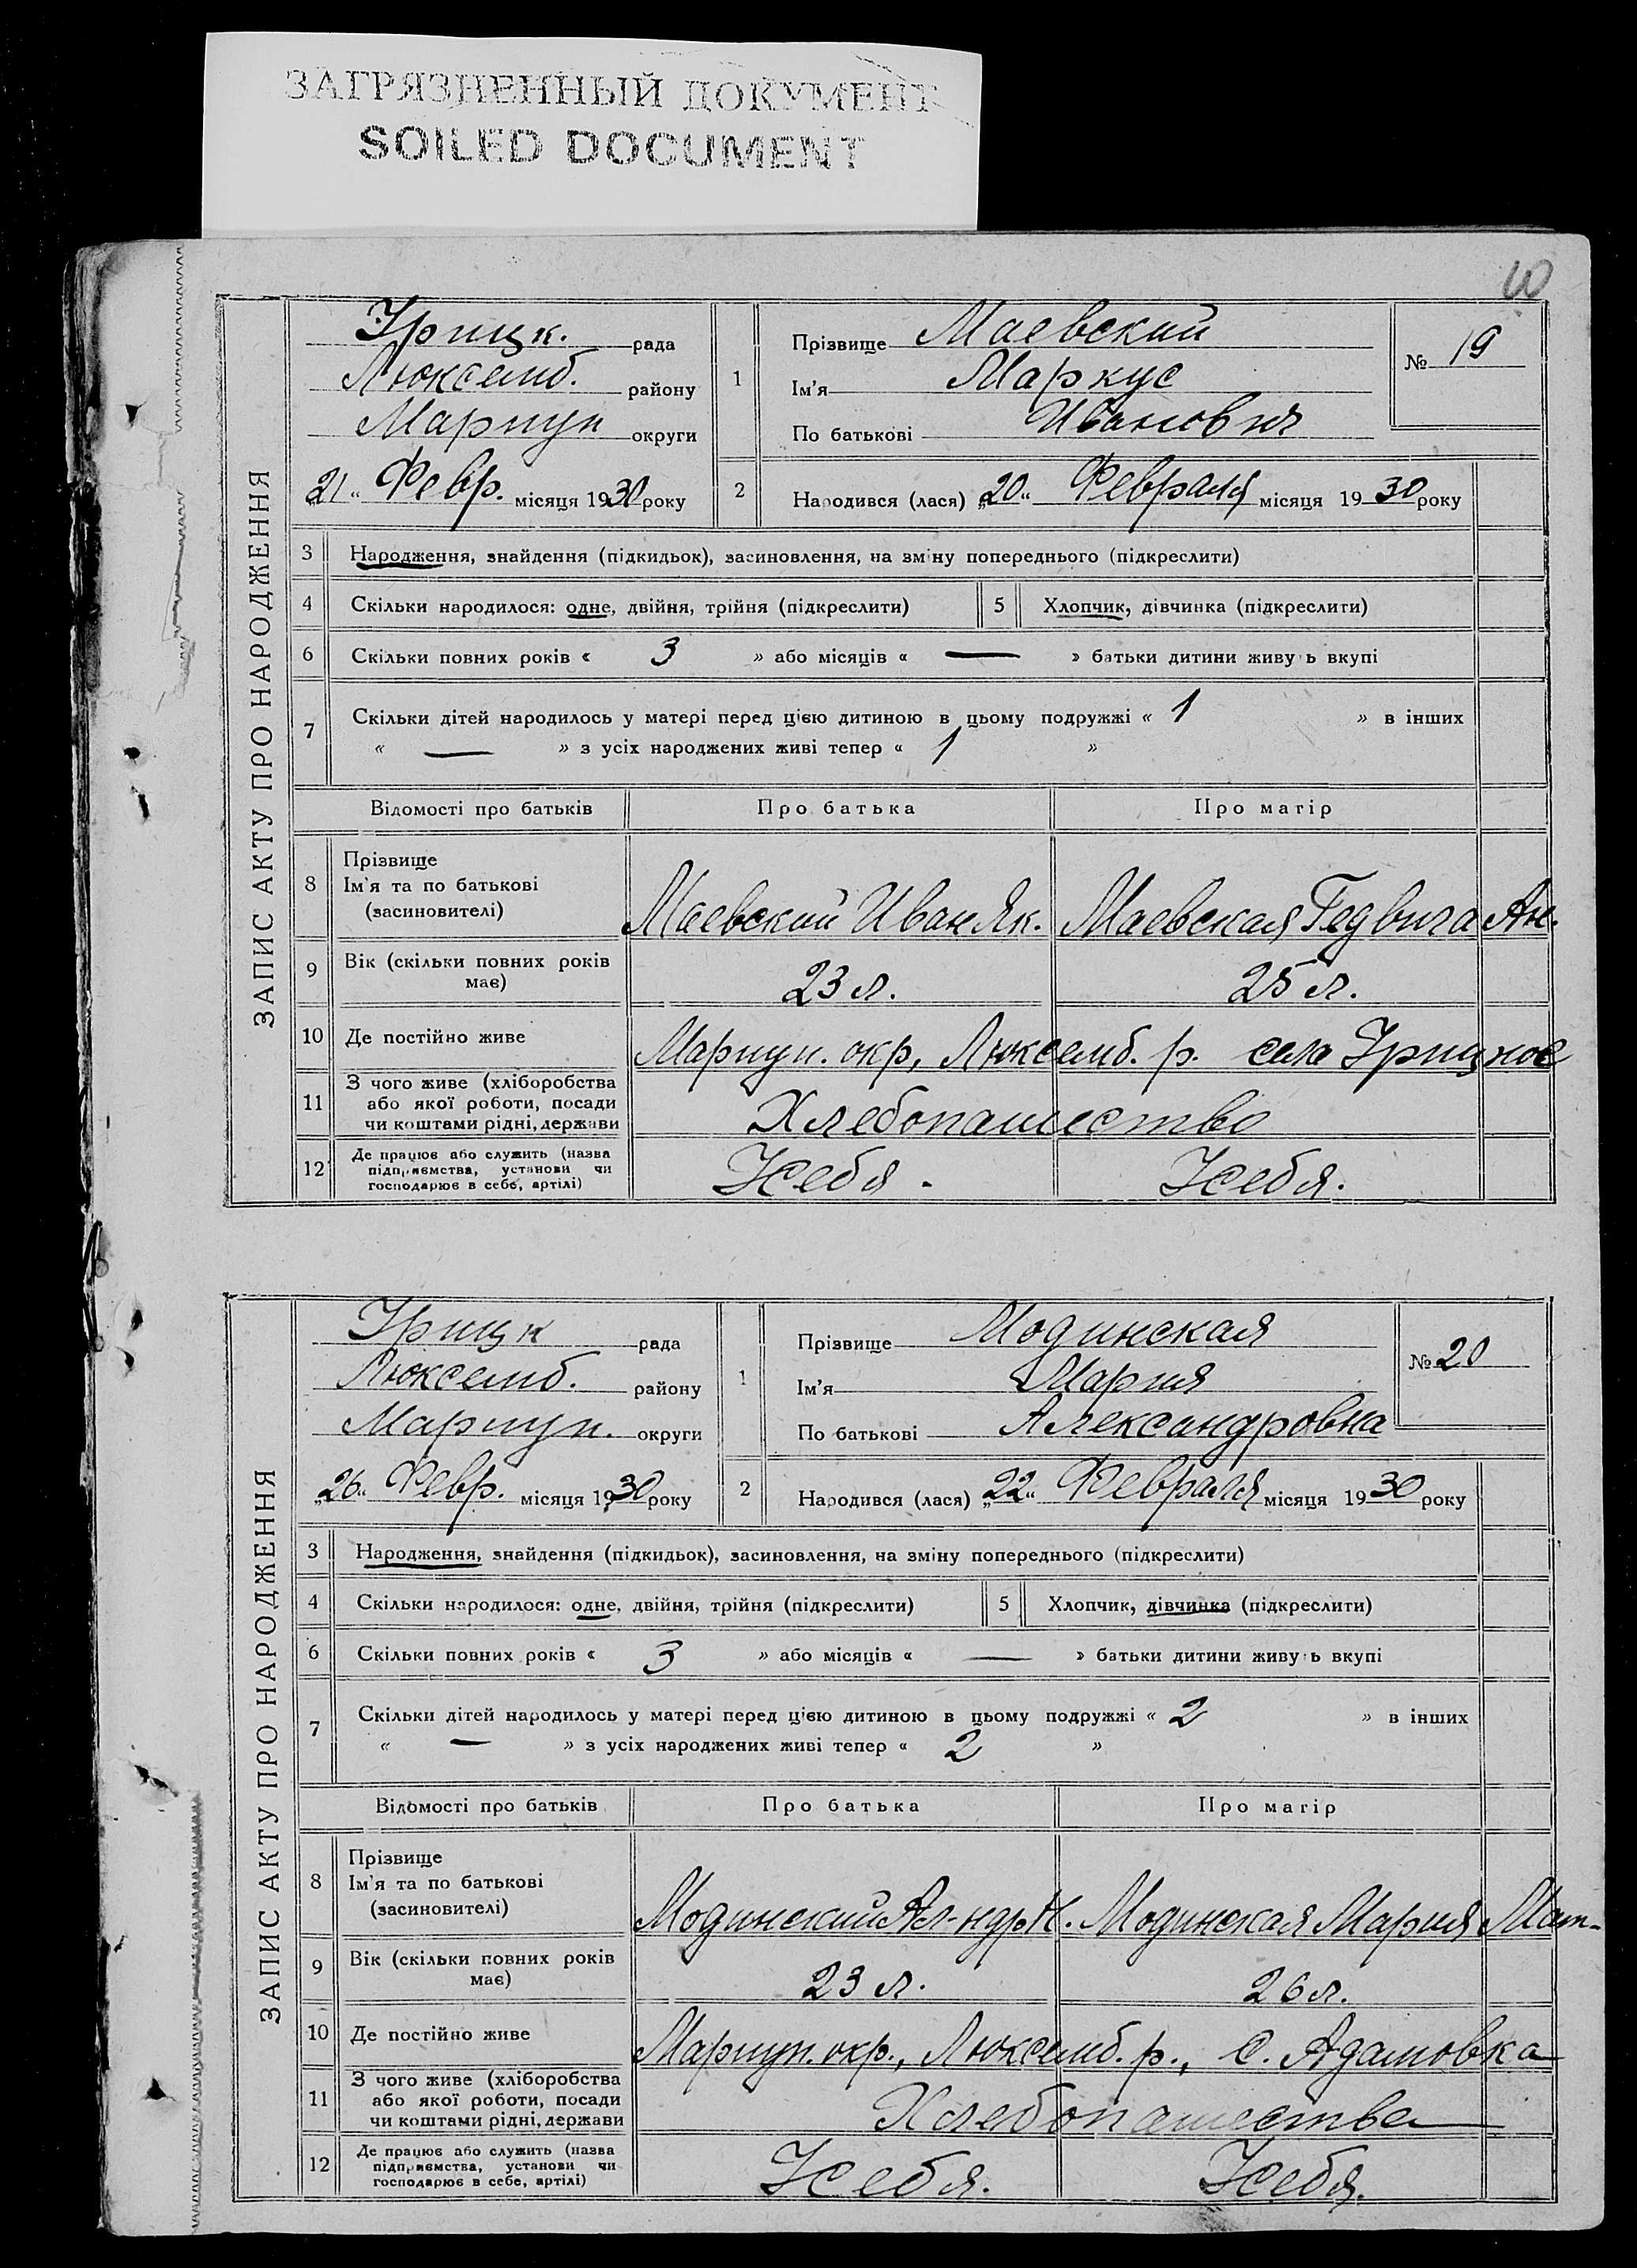 ЗАГРЯЗНЕННЫЙ ДОКУМЕНТ
SOILED DOCUMENT
ЗАПИС АКТУ ПРО НАРОДЖЕННЯ
Урицк. рада
Люксемб. району
Мариуп округи
„21“ Февр. місяця 1930 року
1 Прізвище Маевский
Ім'я Маркус
По батькові Иванович
№ 19
2 Народився (лася) „20“ Февраля місяця 1930 року
3 Народження, знайдення (підкидьок), засиновлення, на зміну попереднього (підкреслити)
4 Скільки народилося: одне, двійня, трійня (підкреслити) 5 Хлопчик, дівчинка (підкреслити)
6 Скільки повних років « 3 » або місяців « — » батьки дитини живуть вкупі
7 Скільки дітей народилось у матері перед цією дитиною в цьому подружжі « 1 » в інших
« — » з усіх народжених живі тепер « 1 »
Відомості про батьків Про батька Про матір
8 Прізвище
Ім'я та по батькові
(засиновителі)
Маевский Иван Як. Маевская Гедвига Ан.
9 Вік (скільки повних років
має)
23 л. 25 л.
10 Де постійно живе Мариуп. окр, Люксемб. р. село Урицкое
11 З чого живе (хліборобства
або якої роботи, посади
чи коштами рідні, держави
Хлебопашество
12 Де працює або служить (назва
підприємства, установи чи
господарює в себе, артілі)
У себя. У себя.
ЗАПИС АКТУ ПРО НАРОДЖЕННЯ
Урицк рада
Люксемб. району
Мариуп. округи
„26“ Февр. місяця 1930 року
1 Прізвище Модинская
Ім'я Мария
По батькові Александровна
№ 20
2 Народився (лася) „22“ Февраля місяця 1930 року
3 Народження, знайдення (підкидьок), засиновлення, на зміну попереднього (підкреслити)
4 Скільки народилося: одне, двійня, трійня (підкреслити) 5 Хлопчик, дівчинка (підкреслити)
6 Скільки повних років « 3 » або місяців « — » батьки дитини живуть вкупі
7 Скільки дітей народилось у матері перед цією дитиною в цьому подружжі « 2 » в інших
« — » з усіх народжених живі тепер « 2 »
Відомості про батьків Про батька Про матір
8 Прізвище
Ім'я та по батькові
(засиновителі)
Модинский Ал-ндр Модинская Мария Мат-
9 Вік (скільки повних років
має)
23 л. 26 л.
10 Де постійно живе Мариуп. окр., Люксемб. р., с. Адамовка
11 З чого живе (хліборобства
або якої роботи, посади
чи коштами рідні, держави
Хлебопашество
12 Де працює або служить (назва
підприємства, установи чи
господарює в себе, артілі)
У себя. У себя.